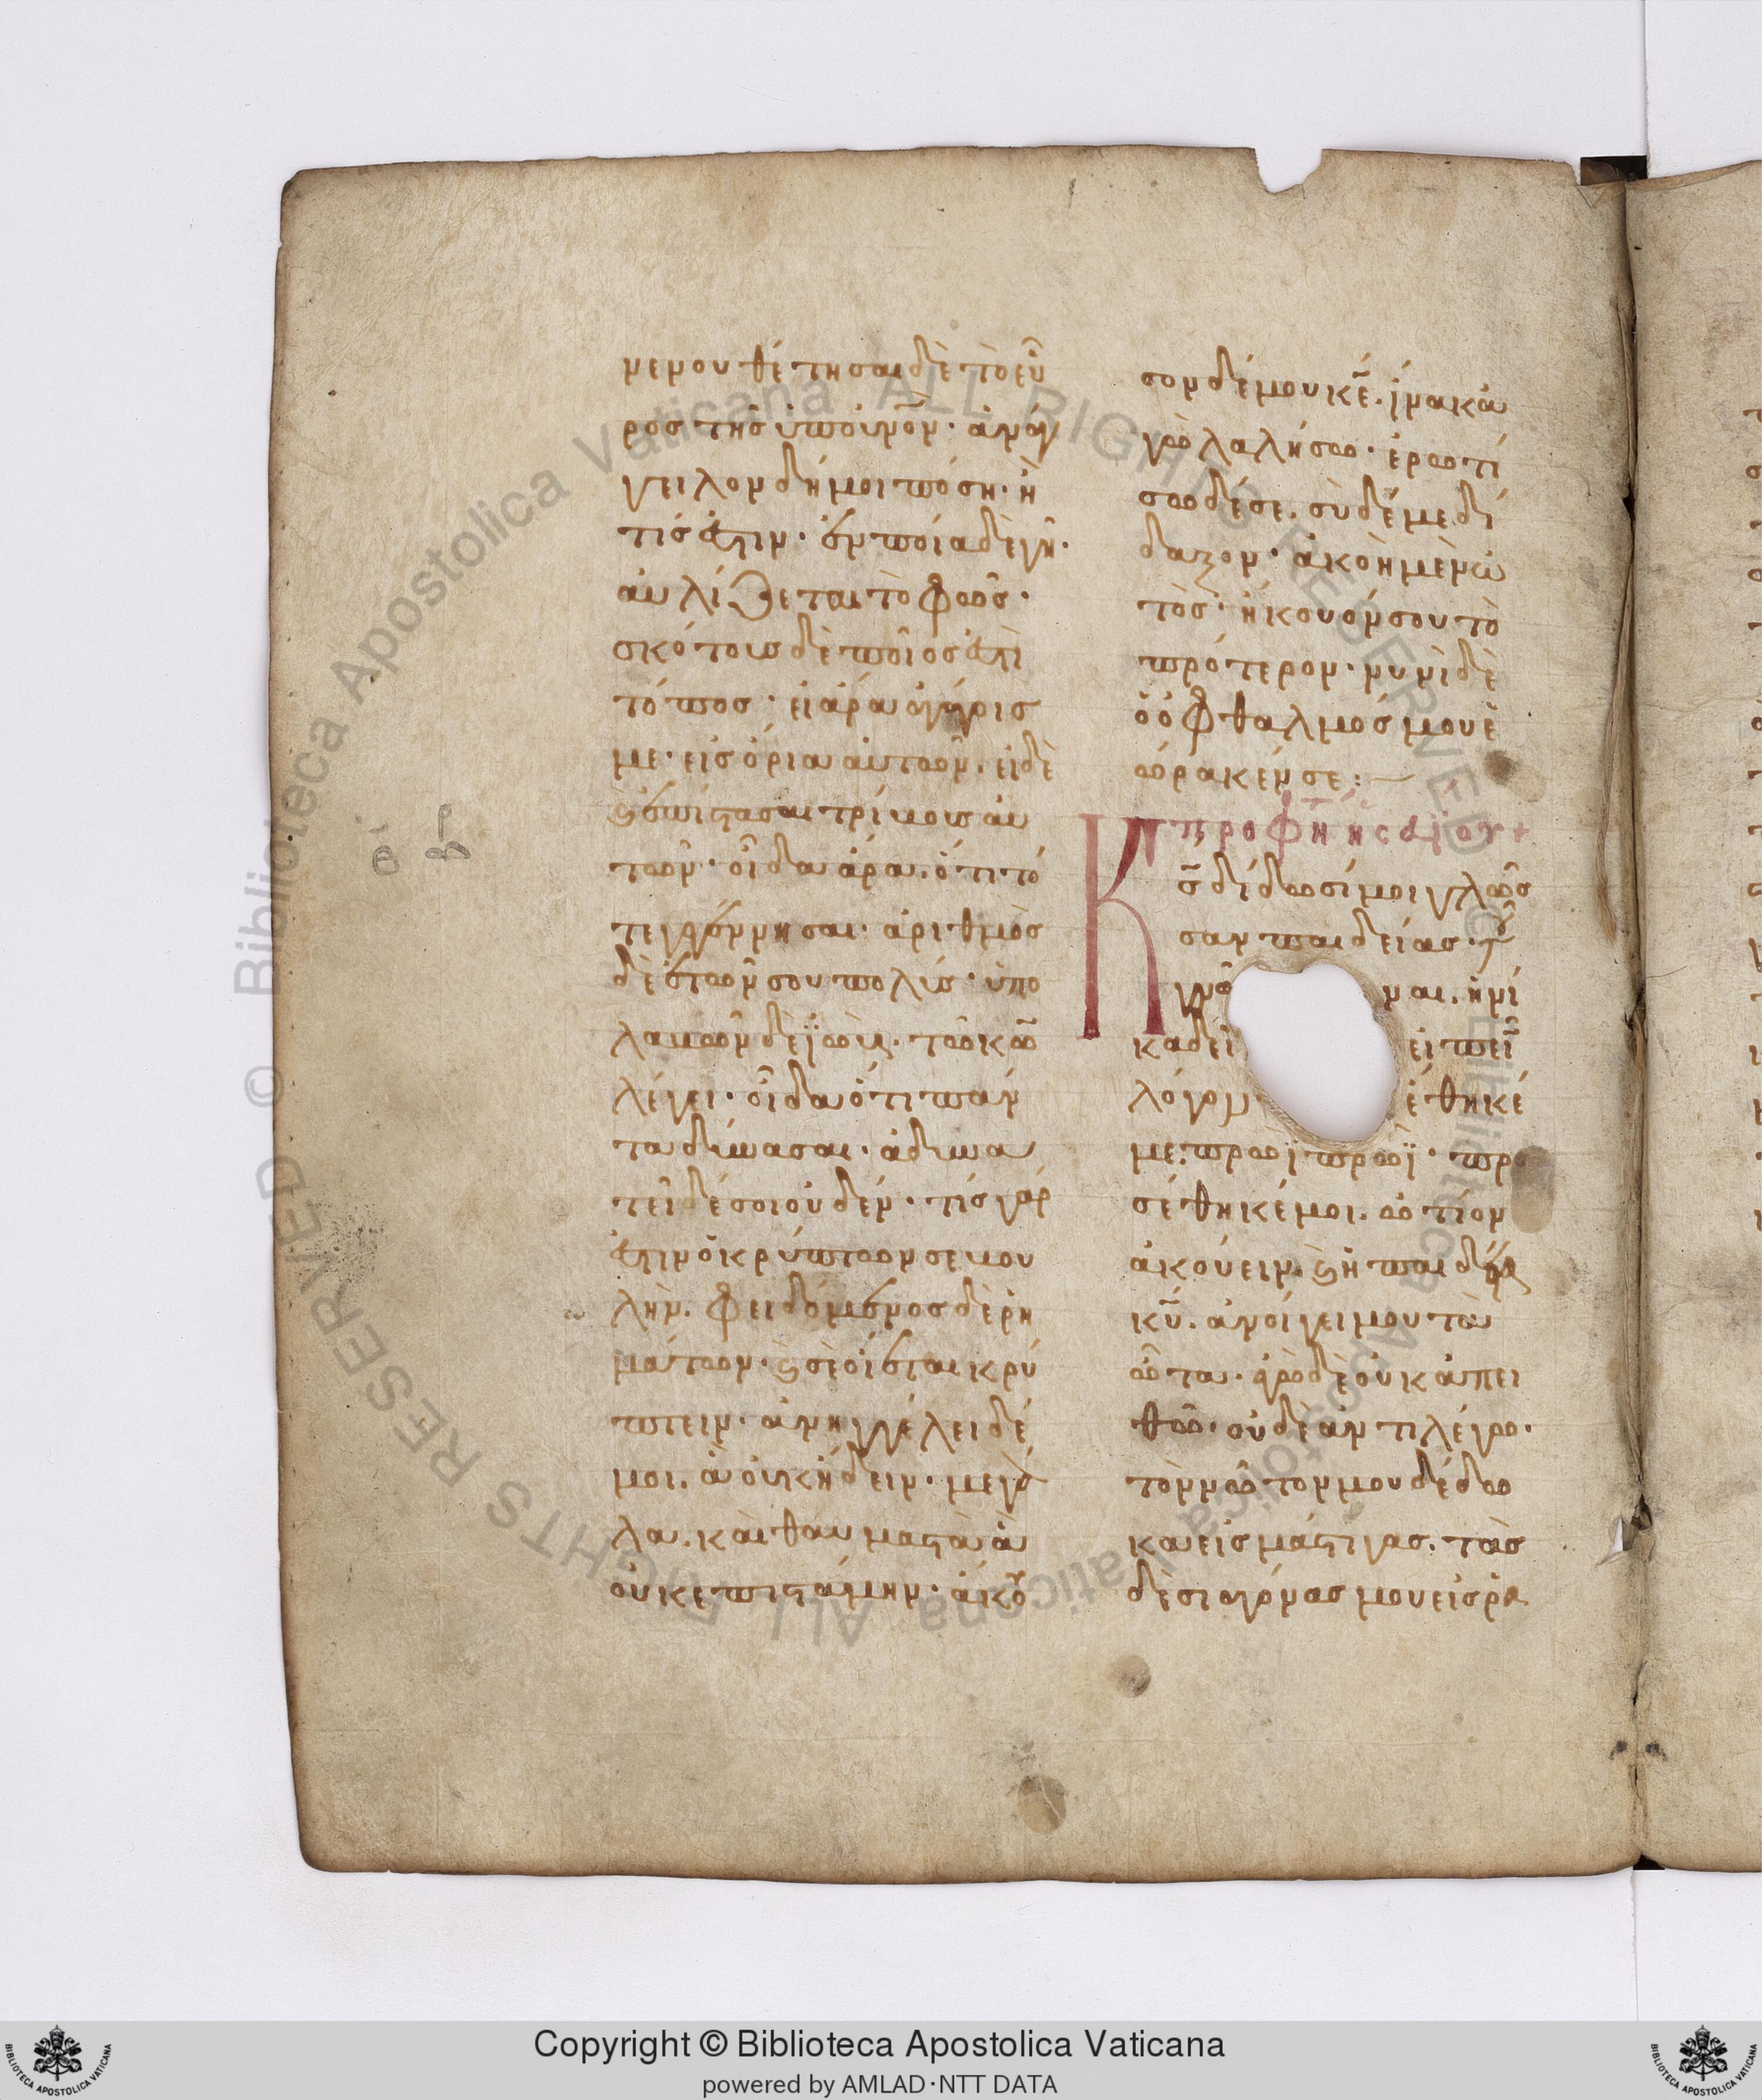 μενουθέτησαι δὲ τὸ εὖ
ρος τῆς ὑπ' οὐ̅νο̅ν· ἀνάγ
γειλον δή μοι πόση· ἢ
τίς ἐστιν· ἐν ποία δὲ γῆ·
αὐλίζεται τὸ φῶς·
σκότους δὲ ποῖος ἐστὶ
τόπος· εἰ ἄρα ἀγάγοις
με· εἰς ὅρια αὐτῶν· εἰ δὲ
ϗ ἐπίστασαι τρίβους αὐ
τῶν· οἶδα ἄρα· ὅτι τό
τε γεγέννησαι· ἀριθμὸς
δὲ ἐτῶν σου πολύς· ὑπο
λαβὼν δὲ ϊὼβ· τῶ κω̅
λέγει· οἶδα ὅτι πάν
τα δύνασαι· ἀδυνα
τεῖ δέ σοι οὐδέν· τίς γάρ
ἐστιν ὁ κρύπτων σε βου
λήν· φειδόμενος δὲ ῥη
μάτων· ϗ σὲ οἴεται κρύ
πτειν· ἀνηγγέλει δέ
μοι· ἃ οὐκ ἤδειν· μεγά
λα· καὶ θαυμαστὰ ἃ
οὐκ ἐπιστάμην· ἄκου
σον δέ μου κε̅· ἵνα κἀ
γὼ λαλήσω· ἐρωτί
σω δέ σε· σὺ δέ με δί
δαξον· ἀκοὴ μὲν ὠ
τὸς· ἤκουόν σου τὸ
πρότερον· νυνὶ δὲ
ὁ ὀφθαλμός μου ἑ
ώρακέν σε:—
προφητ ησαΐου+
Κ
ς̅ δίδωσί μοι γλῶσ
σαν παιδείας· τοῦ
γνῶ ναι· ἡνί
κα δεῖ εἰπεῖ
λόγον· ἔθηκέ
με· πρωῒ πρωῒ· προ
σέθηκέ μοι· ὠτίον
ἀκούειν· ϗ ἡ παιδεία
κυ̅· ἀνοίγει μου τὰ
ὦτα· ἐγὼ δὲ οὐκ ἀπει
θῶ· οὐδὲ ἀντιλέγω·
τὸν νῶτον μου δέδω
κα εἰς μάστιγας· τὰς
δὲ σιαγόνας μου εἰς ῥα
Copyright © Biblioteca Apostolica Vaticana
powered by AMLAD·NTT DATA